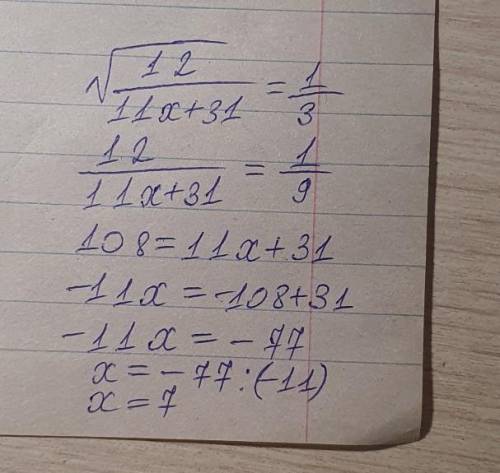 √(12/(11x+31)) = 1/3
12/(11x+31) = 1/9
108=11x+31
-11x=-108+31
-11x=-77
x=-77:(-11)
x=7